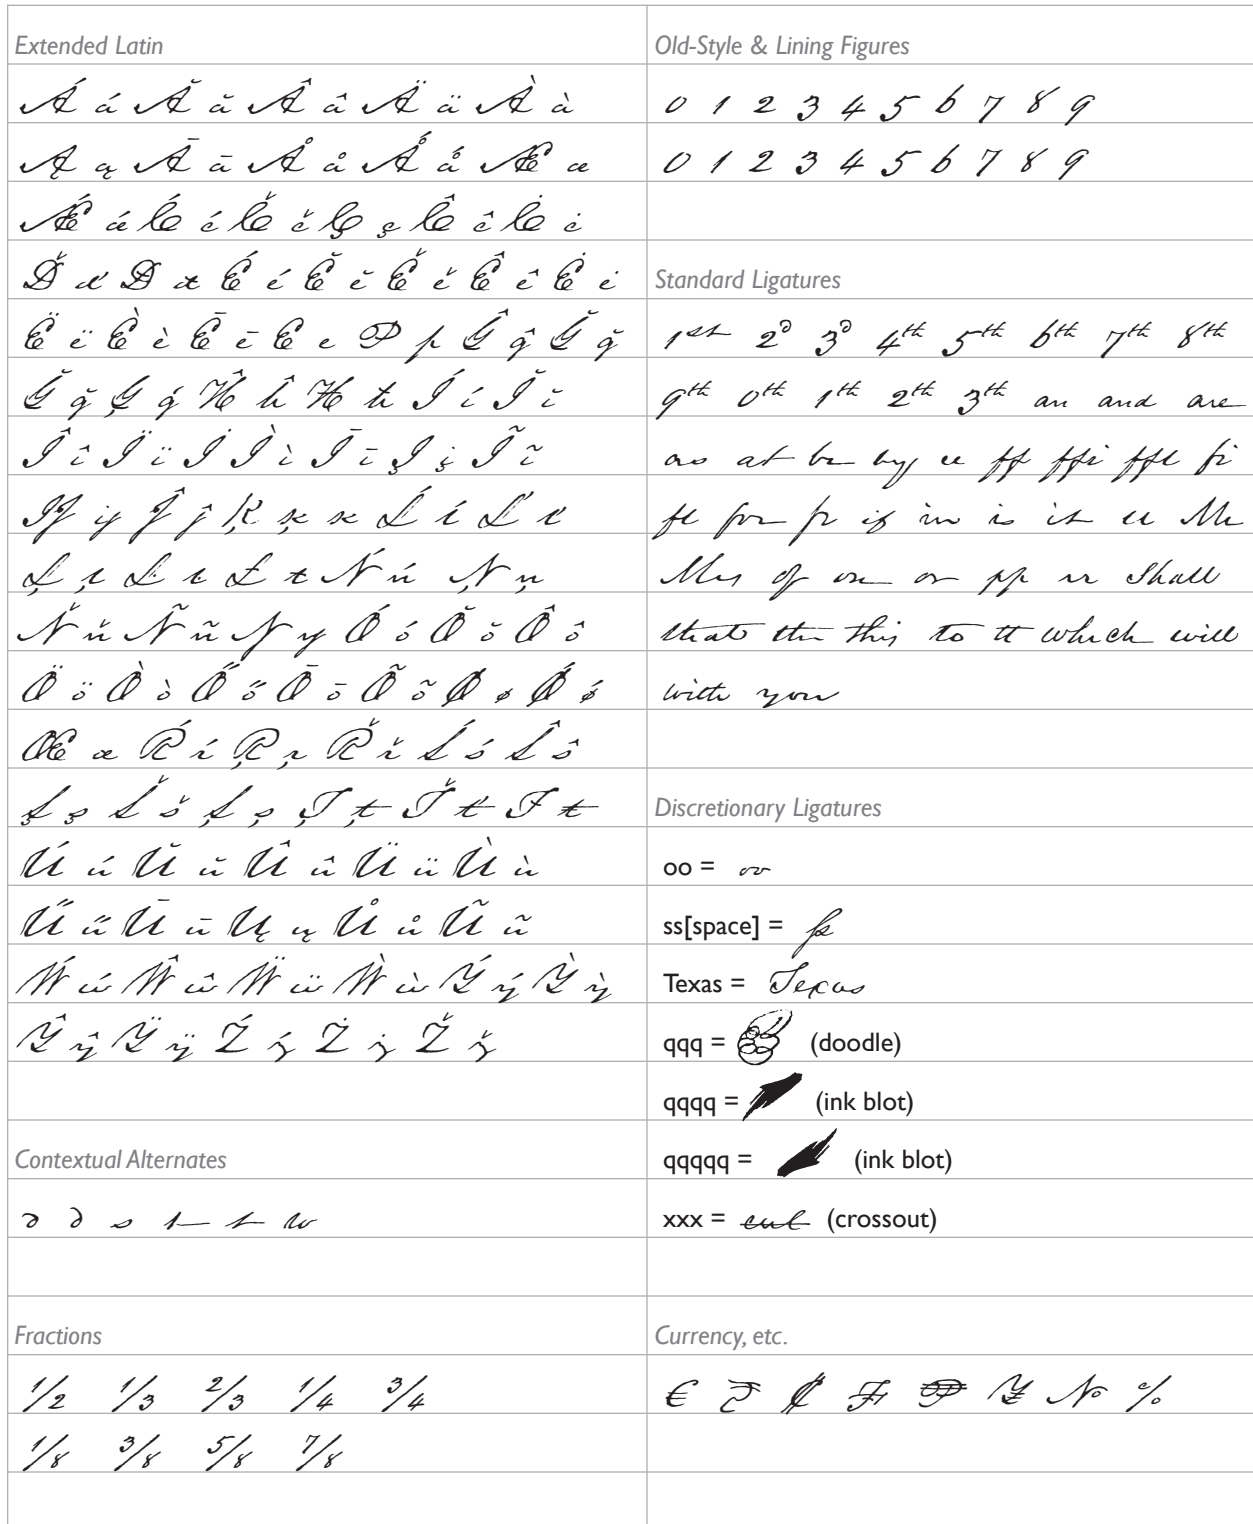 Extended Latin
Á á Ă ă Â â Ä ä À à
Ą ą Ā ā Å å Ǻ ǻ Æ æ
Ǽ ǽ Ć ć Č č Ç ç Ĉ ĉ Ċ ċ
Ď ď Đ đ É é Ĕ ĕ Ě ě Ê ê Ė ė
Ë ë È è Ē ē Ę ę Þ þ Ĝ ĝ Ğ ğ
Ğ ğ Ģ ģ Ĥ ĥ Ħ ħ Í í Ĭ ĭ
Î î Ï ï İ Ì ì Ī ī Į į Ĩ ĩ
IJ ij Ĵ ĵ Ķ ķ ĸ Ĺ ĺ Ľ ľ
Ļ ļ Ŀ ŀ Ł ł Ń ń Ņ ņ
Ň ň Ñ ñ Ŋ ŋ Ó ó Ŏ ŏ Ô ô
Ö ö Ò ò Ő ő Ō ō Õ õ Ø ø Ǿ ǿ
Œ œ Ŕ ŕ Ŗ ŗ Ř ř Ś ś Ŝ ŝ
Ş ş Š š Ș ș Ţ ţ Ť ť Ŧ ŧ
Ú ú Ŭ ŭ Û û Ü ü Ù ù
Ű ű Ū ū Ų ų Ů ů Ũ ũ
Ẃ ẃ Ŵ ŵ Ẅ ẅ Ẁ ẁ Ý ý Ỳ ỳ
Ŷ ŷ Ÿ ÿ Ź ź Ż ż Ž ž
Contextual Alternates
d d s t t w
Fractions
1/2 1/3 2/3 1/4 3/4
1/8 3/8 5/8 7/8
Old-Style & Lining Figures
0 1 2 3 4 5 6 7 8 9
0 1 2 3 4 5 6 7 8 9
Standard Ligatures
1st 2d 3d 4th 5th 6th 7th 8th
9th 0th 1th 2th 3th an and are
as at be by ee ff ffi ffl fi
fl for fr if in is it ll Mr
Mrs of on or pp rr Shall
that the this to tt which will
with you
Discretionary Ligatures
oo = oo
ss[space] = ss
Texas = Texas
qqq = (doodle)
qqqq = (ink blot)
qqqqq = (ink blot)
xxx = cut (crossout)
Currency, etc.
€ ₢ ₡ № %